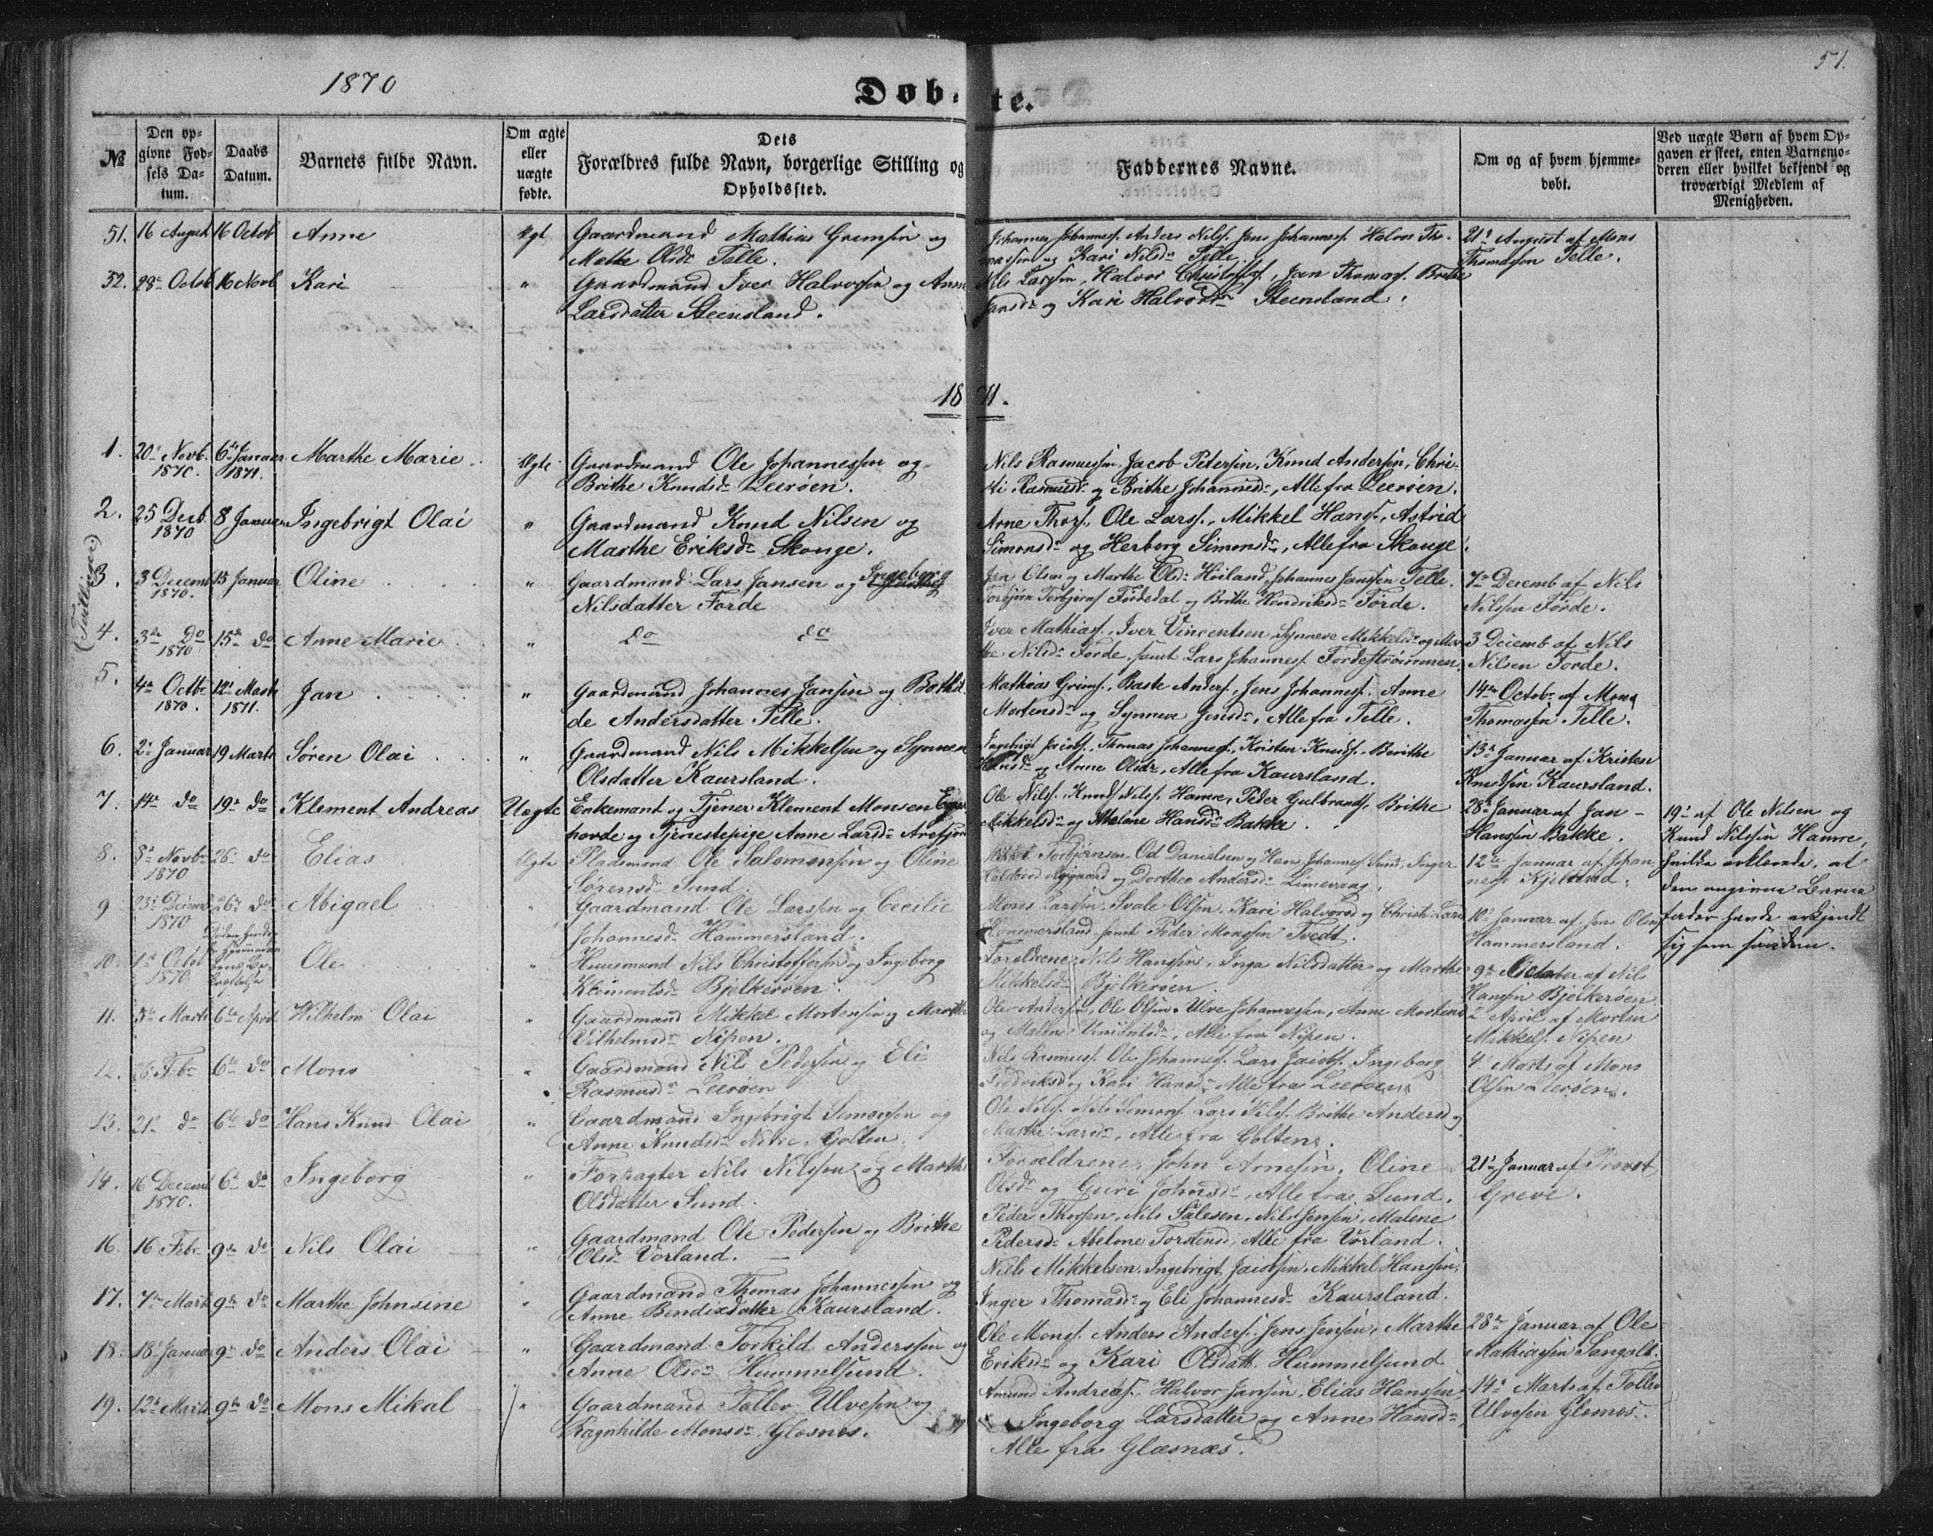 1870
Døbte.
51.
№
Den opgivne Fødsels Datum.
Daabs Datum.
Barnets fulde Navn.
Om ægte eller uægte fødte.
Dets Forældres fulde Navn, borgerlige Stilling og Opholdssted.
Faddernes Navne.
Om og af hvem hjemmedøbt.
Ved uægte Børn af hvem Opgaven er skeet, enten Barnemoderen eller hvilket bekjendt og troværdigt Medlem af Menigheden.
51. 16 August 16 Octob Anne Ægt Gaardmand Mathias Gremsen og
Methe Olsdr Telle.
Johannes Johannesf. Anders Nilsf. Jens Johannesf. Halvor Thomassen og Kari Nilsdr Telle.
21de August af Mons
Thomassen Telle.
52. 28de Octob 16 Novb Kari " Gaardmand Iver Halvorsen og Anne
Larsdatter Steensland.
Nils Larssen, Halvor Christofsf, Jan Thomasf. Brithe
Jansdr og Kari Halvorsdr Steensland.
1871.
1. 20de Novb. 1870. 6te Januar 1871. Marthe Marie Ægte Gaardmand Ole Johannessen og
Brithe Knudsdr Leerøen.
Nils Rasmussen, Jacob Petersen, Knud Andersen, Christi Rasmusdr og Brithe Johannesdr, Alle fra Leerøen.
2. 25 Decb. 1870 8 Januar Ingebrigt Olai " Gaardmand Knud Nilsen og
Marthe Eriksdr Skonge.
Arne Thorsf, Ole Larsf., Mikkel Hansf., Astrid
Simonsdr og Herborg Simonsdr, Alle fra Skonge.
(Tvillinger)
3. 3 Decemb 1870. 15 Januar Oline " Gaardmand Lars Jansen og Ingeborg
Nilsdatter Førde
Jan Olsen og Marthe Olsdr Høiland, Johannes Janssen Telle.
Torbjørn Torbjørnsf Fidedal og Brithe Hendriksdr Førde.
7de Decemb af Nils
Nilsen Førde.
4. 3de Do 1870 15de do Anne Marie " Do do
Iver Mathiasf., Iver Vincentsen, Synneve Mikkelsdr og Marthe Nilsdr Førde, samt Lars Johannesf. Førdestrømmen.
3 Decemb af Nils
Nilsen Førde.
5. 4de Octbr 1870. 12te Marts 1871. Jan " Gaardmand Johannes Jansen og Bothilde Andersdatter Telle.
Mathias Grimsf., Baste Andersf., Jens Johannesf. Anne
Mortensdr og Synneve Jensdr, Alle fra Telle.
14de Octobr af Mons
Thomassen Telle.
6. 2de Januar 19 Marts Søren Olai " Gaardmand Nils Mikkelsen og Synneve
Olsdatter Kaursland.
Ingebrigt Jacobf., Thomas Johannesf., Kristen Knudsf., Berithe
Hansdr og Anne Olsdr, Alle fra Kaursland.
13de Januar af Kristen
Knudsen Kaursland.
7. 14de do 19de do Klement Andreas Uægte Enkemand og Tjener Klement Monsen
og Tjenestepige Anne Larsdr
Ole Nilsf., Knud Nilsf. Hamre, Peder Gulbrandsf. Brithe
Mikkelsdr og Malene Hansdr Bakke.
28de Januar af Jan
Hanssen Bakke.
19de af Ole Nilsen og
Knud Nilssen Hamre,
hvilke erklærede, at
den angivne Barnefader havde erkjendt
sig som saadan.
8. 8de Novbr 1870 26de do Elias Ægte Pladsmand Ole Salomonsen og Oline
Sørensdr Sund.
Mikkel Torbjørnsen, Od Danielsen og Hans Johannesf Sund, Inger
og Dorthea Andersdr Limevang.
12te Januar af Johannes Kjeland.
9 23de Decemb 1870 26de do Abigael " Gaardmand Ole Larssen og Cecilie
Johannesdr Hammersland.
Mons Larssen, Svale Olsen, Kari Halvorsd og Christi Larsd
Hammersland, samt Peder Monssen Tvedt.
10de Januar af Jon Olsen
Hammersland.
10. 1ste Octob 1870. Ole " Huusmand Nils Christoffersen og Ingeborg
Klementsdr Bjelkerøen.
Forældrene, Nils Hanssen, Inga Nilsdatter og Marthe
Mikkelsdr Bjelkerøen.
9de October af Nils
Hanssen Bjelkerøen
11. 5te Marts 6te April Wilhelm Olai " Gaardmand Mikkel Mortensen og Marthe
Vilhelmsdr Nipen.
Ole Andersen, Ole Olsen, Ulve Johannessen, Anne Mortensd
og Malene, Alle fra Nipen.
2 April af Morten
Mikkelsf. Nipen
12. 26 Febr 6te do Mons " Gaardmand Nils Pedersen og Eli
Rasmusdr Leerøen
Nils Rasmusf. Ole Johannesf. Lars Jacobf. Ingeborg
Fredriksd og Kari Hansdr Alle fra Leerøen.
4de Marts af Mons
Olsen Leerøen.
13. 21de do 6te do Hans Knud Olai " Gaardmand Ingebrigt Simonsen og
Anne Knudsdr Nedre Golten.
Ole Nilsf. Nils Simonsf. Lars Nilsf. Brithe Andersd og
Marthe Larsdr, Alle fra Goltens.
14. 16 Decemb 1870. 6te do Ingeborg " Forpagter Nils Nilssen og Marthe
Olsdatter Sund.
Forældrene, John Arnesen, Oline
Olsdr og Guri Johnsdr, Alle fra Sund.
21de Januar af Provst
Greve.
16 16 Febr 9de do Nils Olai " Gaardmand Ole Pedersen og Brithe
Olsdr Vorland.
Peder Thorsen, Nils Salesen, Nils Jensen, Malene
Pedersdr Abelone Torstensd, Alle fra Vorland.
17. 7de Marts 9de do Marthe Johnsine " Gaardmand Thomas Johannessen og
Anne Bendixdatter Kaursland.
Niels Mikkelsen, Ingebrigt Jacobsen, Mikkel Hanssen,
Inger Thomasdr og Eli Johannesdr Kaursland.
18. 18de Januar 9de do Anders Olai " Gaardmand Torkild Anderssen og
Anne Olsdr Hummelsund.
Ole Monsf. Anders Andersf. Jens Jensen, Marthe
Eriksdr og Kari Olsdatt. Hummelsund
28de Januar af Ole
Mathiassen Sangolt.
19. 12te Marts 9de do Mons Mikal " Gaardmand Tollev Ulvesen og
Ragnhilde Monsdr Glæsnes.
Amund Andreasf., Halvor Jansen, Elias Hanssen
Ingeborg Larsdatter og Anne Hansdr,
Alle fra Glæsnæs.
14de Marts af Tollev
Ulvesen Glæsnæs.